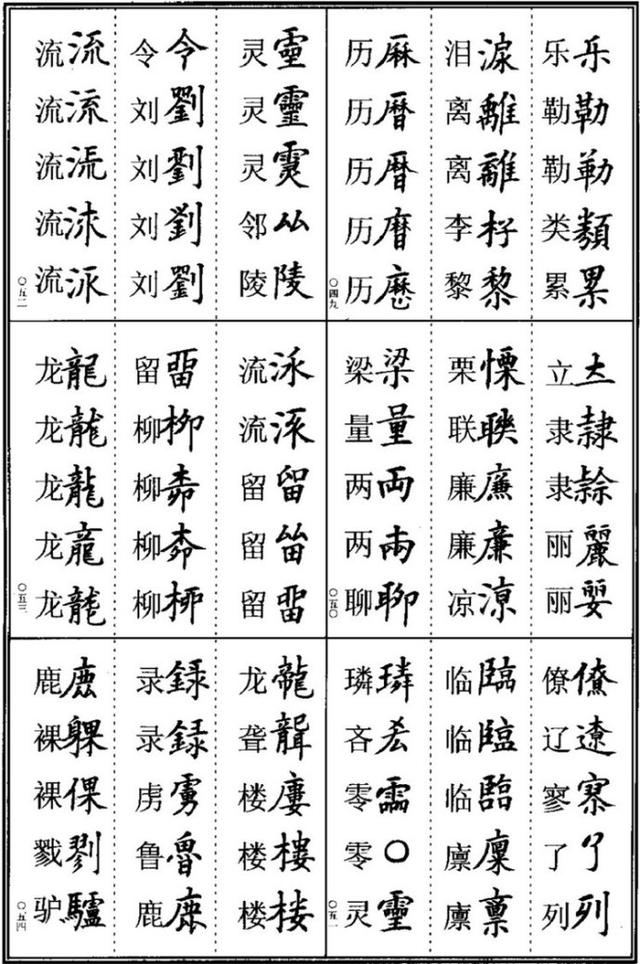 乐乐
勒勒
勒勒
类類
累累
泪淚
离離
离離
李杍
黎黎
历厤
历暦
历暦
历
历歴
〇四九
立
隶隸
隶
丽麗
丽
栗慄
联聨
廉廉
廉廉
凉凉
梁梁
量量
两両
两两
聊聊
〇五〇
僚僚
辽遼
寥寮
了了
列列
临臨
临臨
临臨
廪廩
廪稟
璘璘
吝
零霝
零〇
灵靈
〇五一
灵靈
灵靈
灵
邻厸
陵陵
令令
刘劉
刘劉
刘劉
刘劉
流流
流流
流
流
流
〇五二
流
流
留留
留
留畱
留畱
柳柳
柳
柳
柳桺
龙龍
龙龍
龙龍
龙龍
龙龍
〇五三
龙龍
聋聾
楼廔
楼樓
楼楼
录録
录録
虏虜
鲁魯
鹿鹿
鹿鹿
裸躶
裸倮
戮剹
驴驢
〇五四